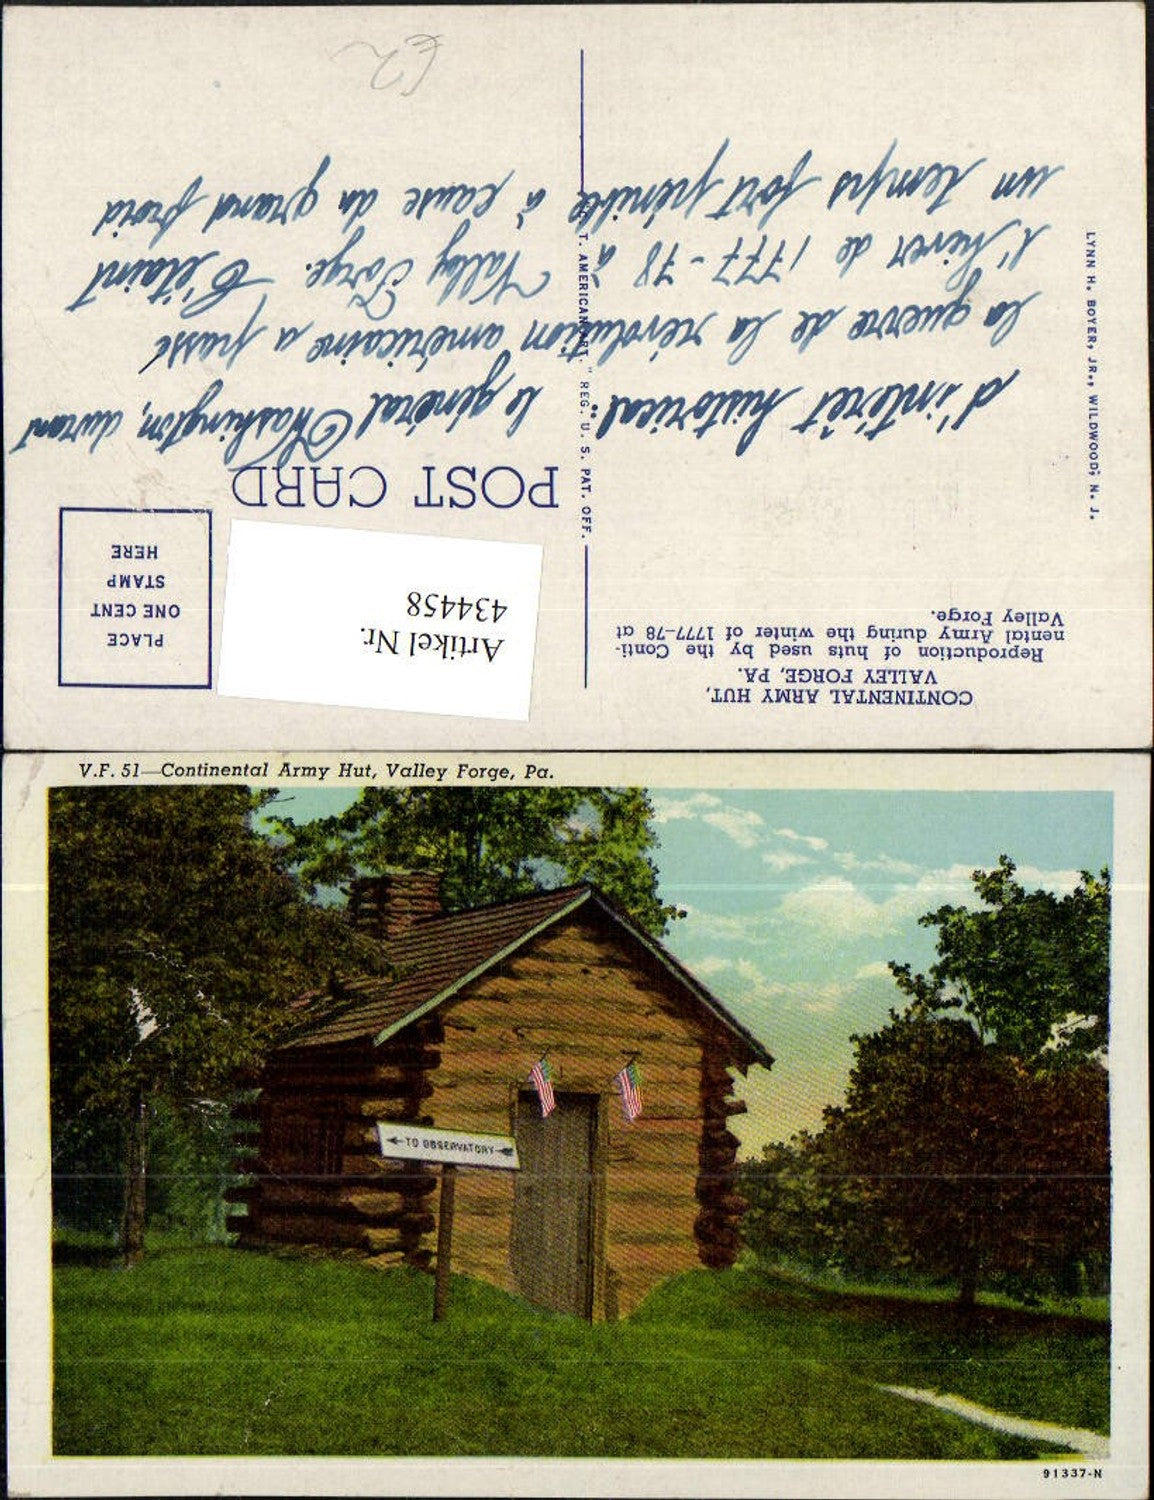 CONTINENTAL ARMY HUT,
VALLEY FORGE, PA.
Reproduction of huts used by the Conti-
nental Army during the winter of 1777-78 at
Valley Forge.
LYNN H. BOYER, JR., WILDWOOD, N. J.
T. AMERICAN ART." REG. U. S. PAT. OFF.
Artikel Nr.
434458
PLACE
ONE CENT
STAMP
HERE
POST CARD
d'intérêt historical. le général Washington, durant
la guerre de la révolution américaine a passé
l'hiver de 1777-78 à Valley Forge. C'étaint
un temps fort pénible à cause du grand froid
V.F. 51—Continental Army Hut, Valley Forge, Pa.
TO OBSERVATORY
91337-N